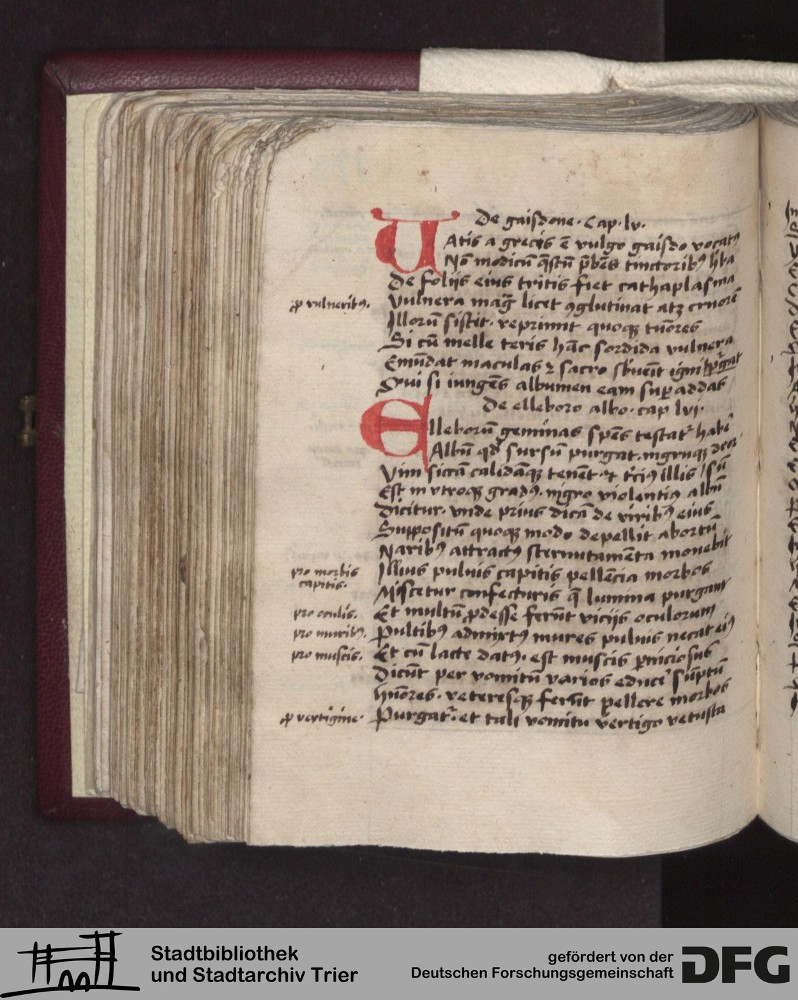 De gaisdone. Cap. lv.
Vatis a grecis ē vulgo gaisdo vocatꝰ
Nō modicū q̄stū p̄bēs tinctoribꝰ hba
De folijs eius tritis fiet cathaplasma
ꝓ vulneribꝰ.
Vulnera maḡ licet ꝯglutinat atqꝫ cruorē
Illorū sistit. reprimit quoqꝫ tūores
Si cū melle teris hāc sordida vulnera
Emūdat maculas
Ovi si iungēs albumen eam suꝑ addas
De elleboro albo. cap lvi.
Elleborū geminas spēs testatr̄ habē
Albū qd̄ sursū purgat. nigrūqꝫ
Vim siccā calidāqꝫ tenēt. t̄ciꝰ illis sū
Est in vtroqꝫ gradꝰ. nigro violentiꝰ albū
Dicitur. vnde prius dicā de viribꝰ eius
Suppositū quoqꝫ modo depellit abortū
Naribꝰ attractꝰ sternutamēta monebit
pro morbis
capitis.
Illius puluis capitis pellēcia morbos
Miscetur confecturis q̄ lumina purgant
pro oculis.
Et multū ꝓdesse ferūt vicijs oculorum
pro muribꝰ.
Pultibꝰ admixtꝰ mures puluis necat eiꝰ
pro muscis.
Et cū lacte datꝰ. est muscis ꝑniciosus
Dicūt per vomitū varios educē sūptū
Hūores. veteresqꝫ ferūt pellere morbos
ꝓ vertigine.
Purgatr̄. et tali vomitu vertigo vetusta
Stadtbibliothek
und Stadtarchiv Trier
gefördert von der
Deutschen Forschungsgemeinschaft
DFG